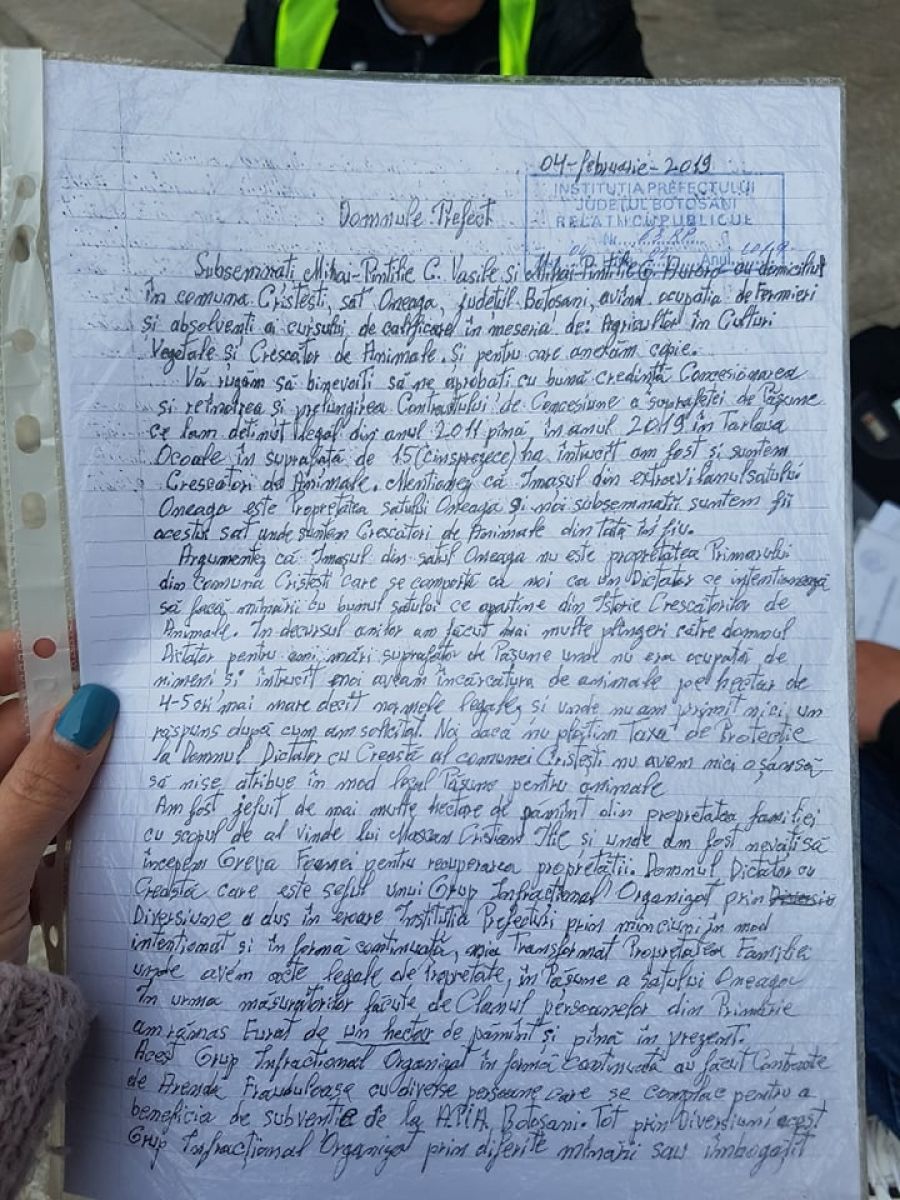 04-februarie-2019
INSTITUȚIA PREFECTULUI
JUDEȚUL BOTOȘANI
RELAȚII CU PUBLICUL
Nr.
Anul 2019
Domnule Prefect
Subseminati, Mihai-Pintilie C. Vasile si Mihai-Pintilie G. Aurora cu domiciliul
în comuna Cristești, sat Oneaga, județul Botoșani, avînd ocupatia de Fermieri
si absolvenți a cursului de calificare în meseria de: Agricultor în Culturi
Vegetale și Crescator de Animale. Și pentru care anexăm copie.
Vă rugăm să binevoiti să ne aprobati cu bună credință Concesionarea
si reînoirea si prelungirea Contractului de Concesiune a suprafetei de Pășune
ce lam detinut legal din anul 2011 pînă în anul 2019 în Tarlaua
Ocoale în suprafață de 15 (cinsprezece) ha întrucît am fost si suntem
Crescători de Animale. Mentionez că Imașul din extravilanul satului
Oneaga este Propretatea satului Oneaga și noi subsemnatii suntem fii
acestui sat unde suntem Crescători de Animale din tată în fiu.
Argumentez că Imașul din satul Oneaga nu este propretatea Primarului
din Comuna Cristești care se comportă ca noi ca un Dictator ce intentionează
să facă mînării cu bunul satului ce apartine din Istorie Crescătorilor de
Animale. În decursul anilor am făcut mai multe plîngeri către domnul
Dictator pentru ani mări suprafator de Pășune unde nu era ocupată de
nimeni si întrucit noi aveam încărcătura de animale pe hectar de
4-5 ori mai mare decît normele legale, si unde nu am primit nici un
răspuns după cum am solicitat. Noi dacă nu plătim Taxa de Protectie
la Domnul Dictator cu Creasta al comunei Cristești nu avem nici o șansă
să nise atribe în mod legal Pășune pentru animale
Am fost jefuit de mai multe hectare de pămînt din propretatea familiei
cu scopul de al vinde lui Cristian Ilie și unde am fost nevoiti să
începem Greva Foamei pentru recuperarea propretății. Domnul Dictator cu
Creasta care este seful unui Grup Infracțional Organizat prin
Diversiune a dus în eroare Institutia Prefecturi prin minciuni, în mod
intentionat si în formă continuată, Transformat Propretatea Familiei
unde avem acte legale de Propretate, în Pășune a Satului Oneaga
În urma masurătorilor făcute de Clanul persoanelor din Primărie
am rămas Furat de un hectar de pămînt și pînă în prezent.
Acest Grup Infractional Organizat în formă continuată au făcut Contracte
de Arendă Frauduloasa cu diverse persoane care se complac pentru a
beneficia de subventie de la APIA Botoșani. Tot prin Diversiuni acest
Grup Infracțional Organizat prin diferite mînării sau îmbogațit